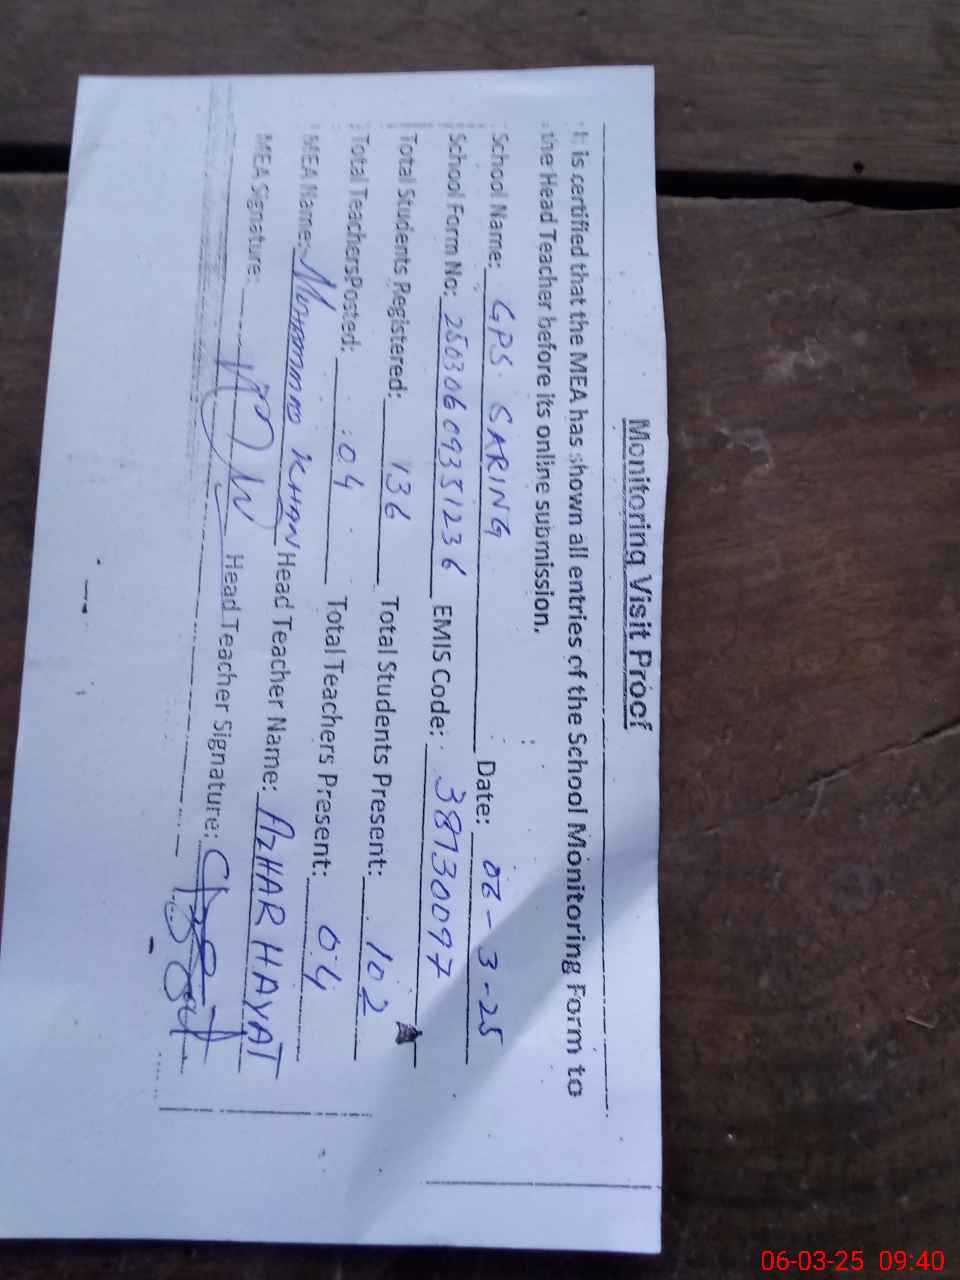 Monitoring Visit Proof
It is certified that the MEA has shown all entries of the School Monitoring Form to
the Head Teacher before its online submission.
School Name: GPS SARING Date: 06-3-25
School Form No: 25030609351236 EMIS Code: 38130097
Total Students Registered: 136 Total Students Present: 102
Total TeachersPosted: 04 Total Teachers Present: 04
MEA Name: Mohammad KHAN Head Teacher Name: AZHAR HAYAT
MEA Signature: Head Teacher Signature:
06-03-25 09:40